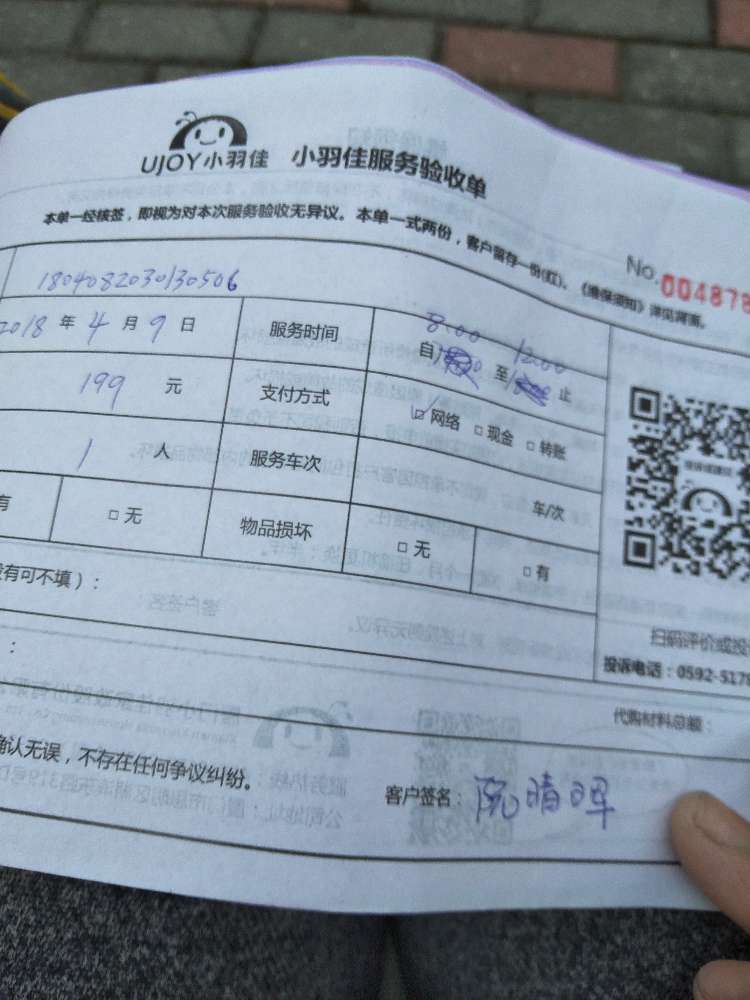 UJOY小羽佳 小羽佳服务验收单
本单一经核签，即视为对本次服务验收无异议。本单一式两份，客户留存一份(红)。《维保须知》详见背面。
No.004878
1804082030130506
2018 年 4 月 9 日 服务时间 自 8:00 至 12:00 止
199 元 支付方式 ☑ 网络 □ 现金 □ 转账
1 人 服务车次 车/次
有 □ 无 物品损坏 □ 无 □ 有
没有可不填）：
：
扫码评价或投
投诉电话：0592-5178
代购材料总额：
确认无误，不存在任何争议纠纷。
客户签名：阮晴晖